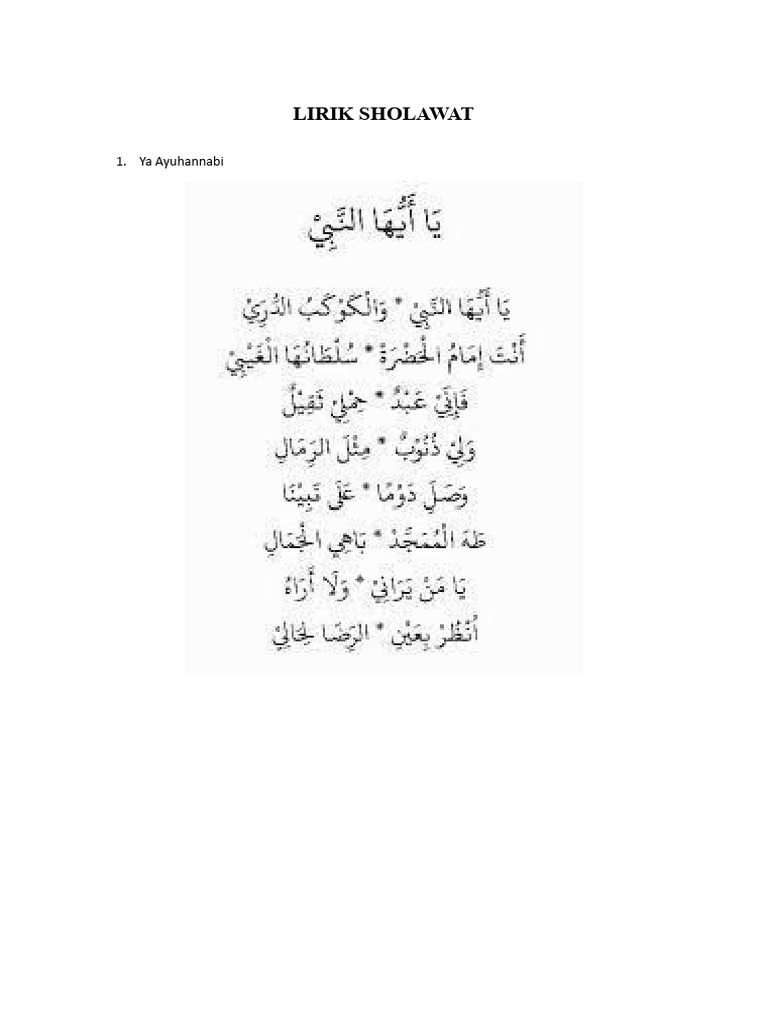 LIRIK SHOLAWAT
1. Ya Ayuhannabi
يَا أَيُّهَا النَّبِيْ
يَا أَيُّهَا النَّبِيْ * وَالْكَوْكَبُ الدُّرِيْ
أَنْتَ إِمَامُ الْحَضْرَةْ * سُلْطَانُهَا الْغَيْبِيْ
فَإِنِّيْ عَبْدٌ * حِمْلِيْ ثَقِيْلٌ
وَلِيْ ذُنُوْبٌ * مِثْلَ الرِّمَالِ
وَصَلِّ دَوْمًا * عَلَى نَبِيْنَا
طَهَ الْمُمَجَّدْ * بَاهِي الْجَمَالِ
يَا مَنْ يَرَانِيْ * وَلَا أَرَاهُ
اُنْظُرْ بِعَيْنِ * الرِّضَا لِحَالِيْ